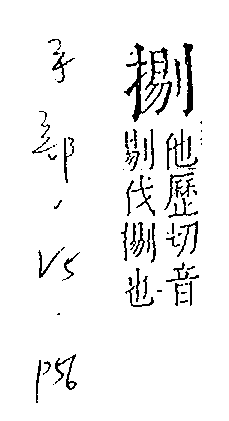 他歷切音
剔伐也
手部、V5.P56